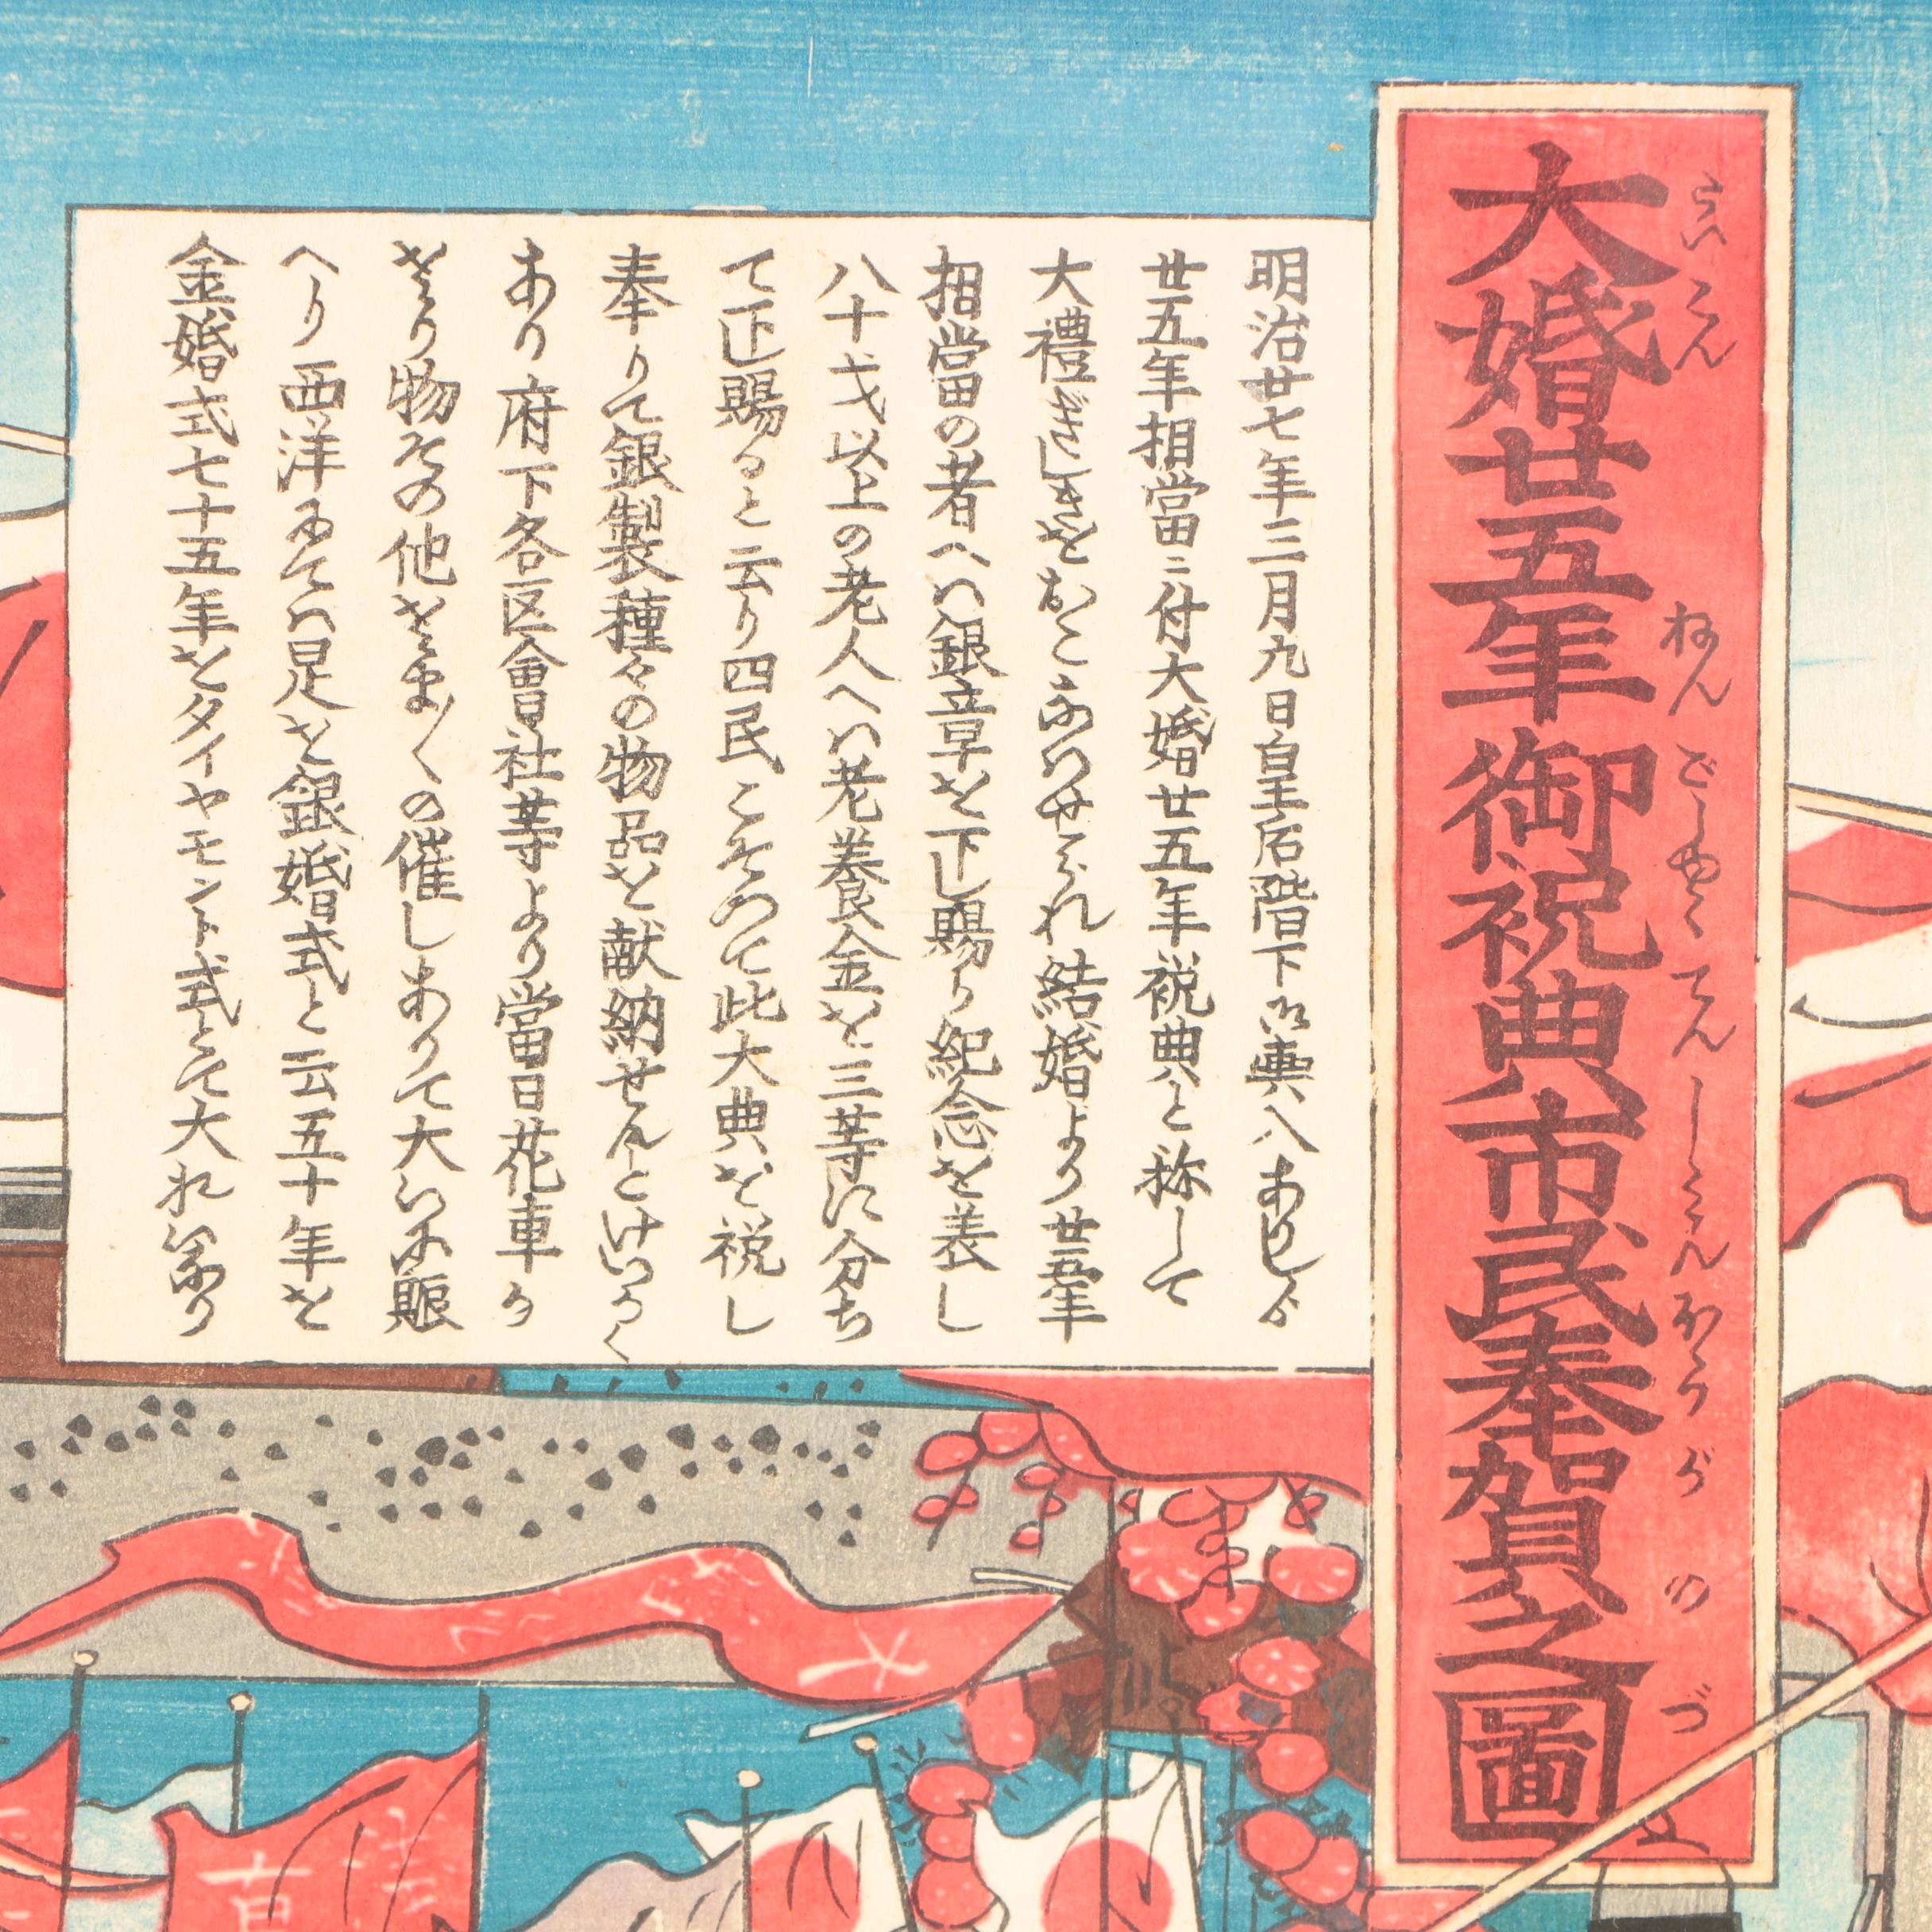 大婚廿五年御祝典市民奉賀之圖
たいこん ねん ごしゆくてん しみんほうが の づ
明治廿七年三月九日皇后陛下御輿入ありしが
廿五年相當ニ付大婚廿五年祝典と称して
大禮ぎしきをおこなハせられ結婚より廿五年
相當の者へハ銀章を下し賜り紀念を表し
八十才以上の老人へハ老養金を三等に分ち
て下し賜ると云り四民こぞつて此大典を祝し
奉りて銀製種々の物品を献納せんとけいかく
あり府下各区會社等より當日花車か
ざり物その他さま〲の催しありて大いに賑
へり西洋にてハ是を銀婚式と云五十年を
金婚式七十五年をダイヤモント式とて大礼なり